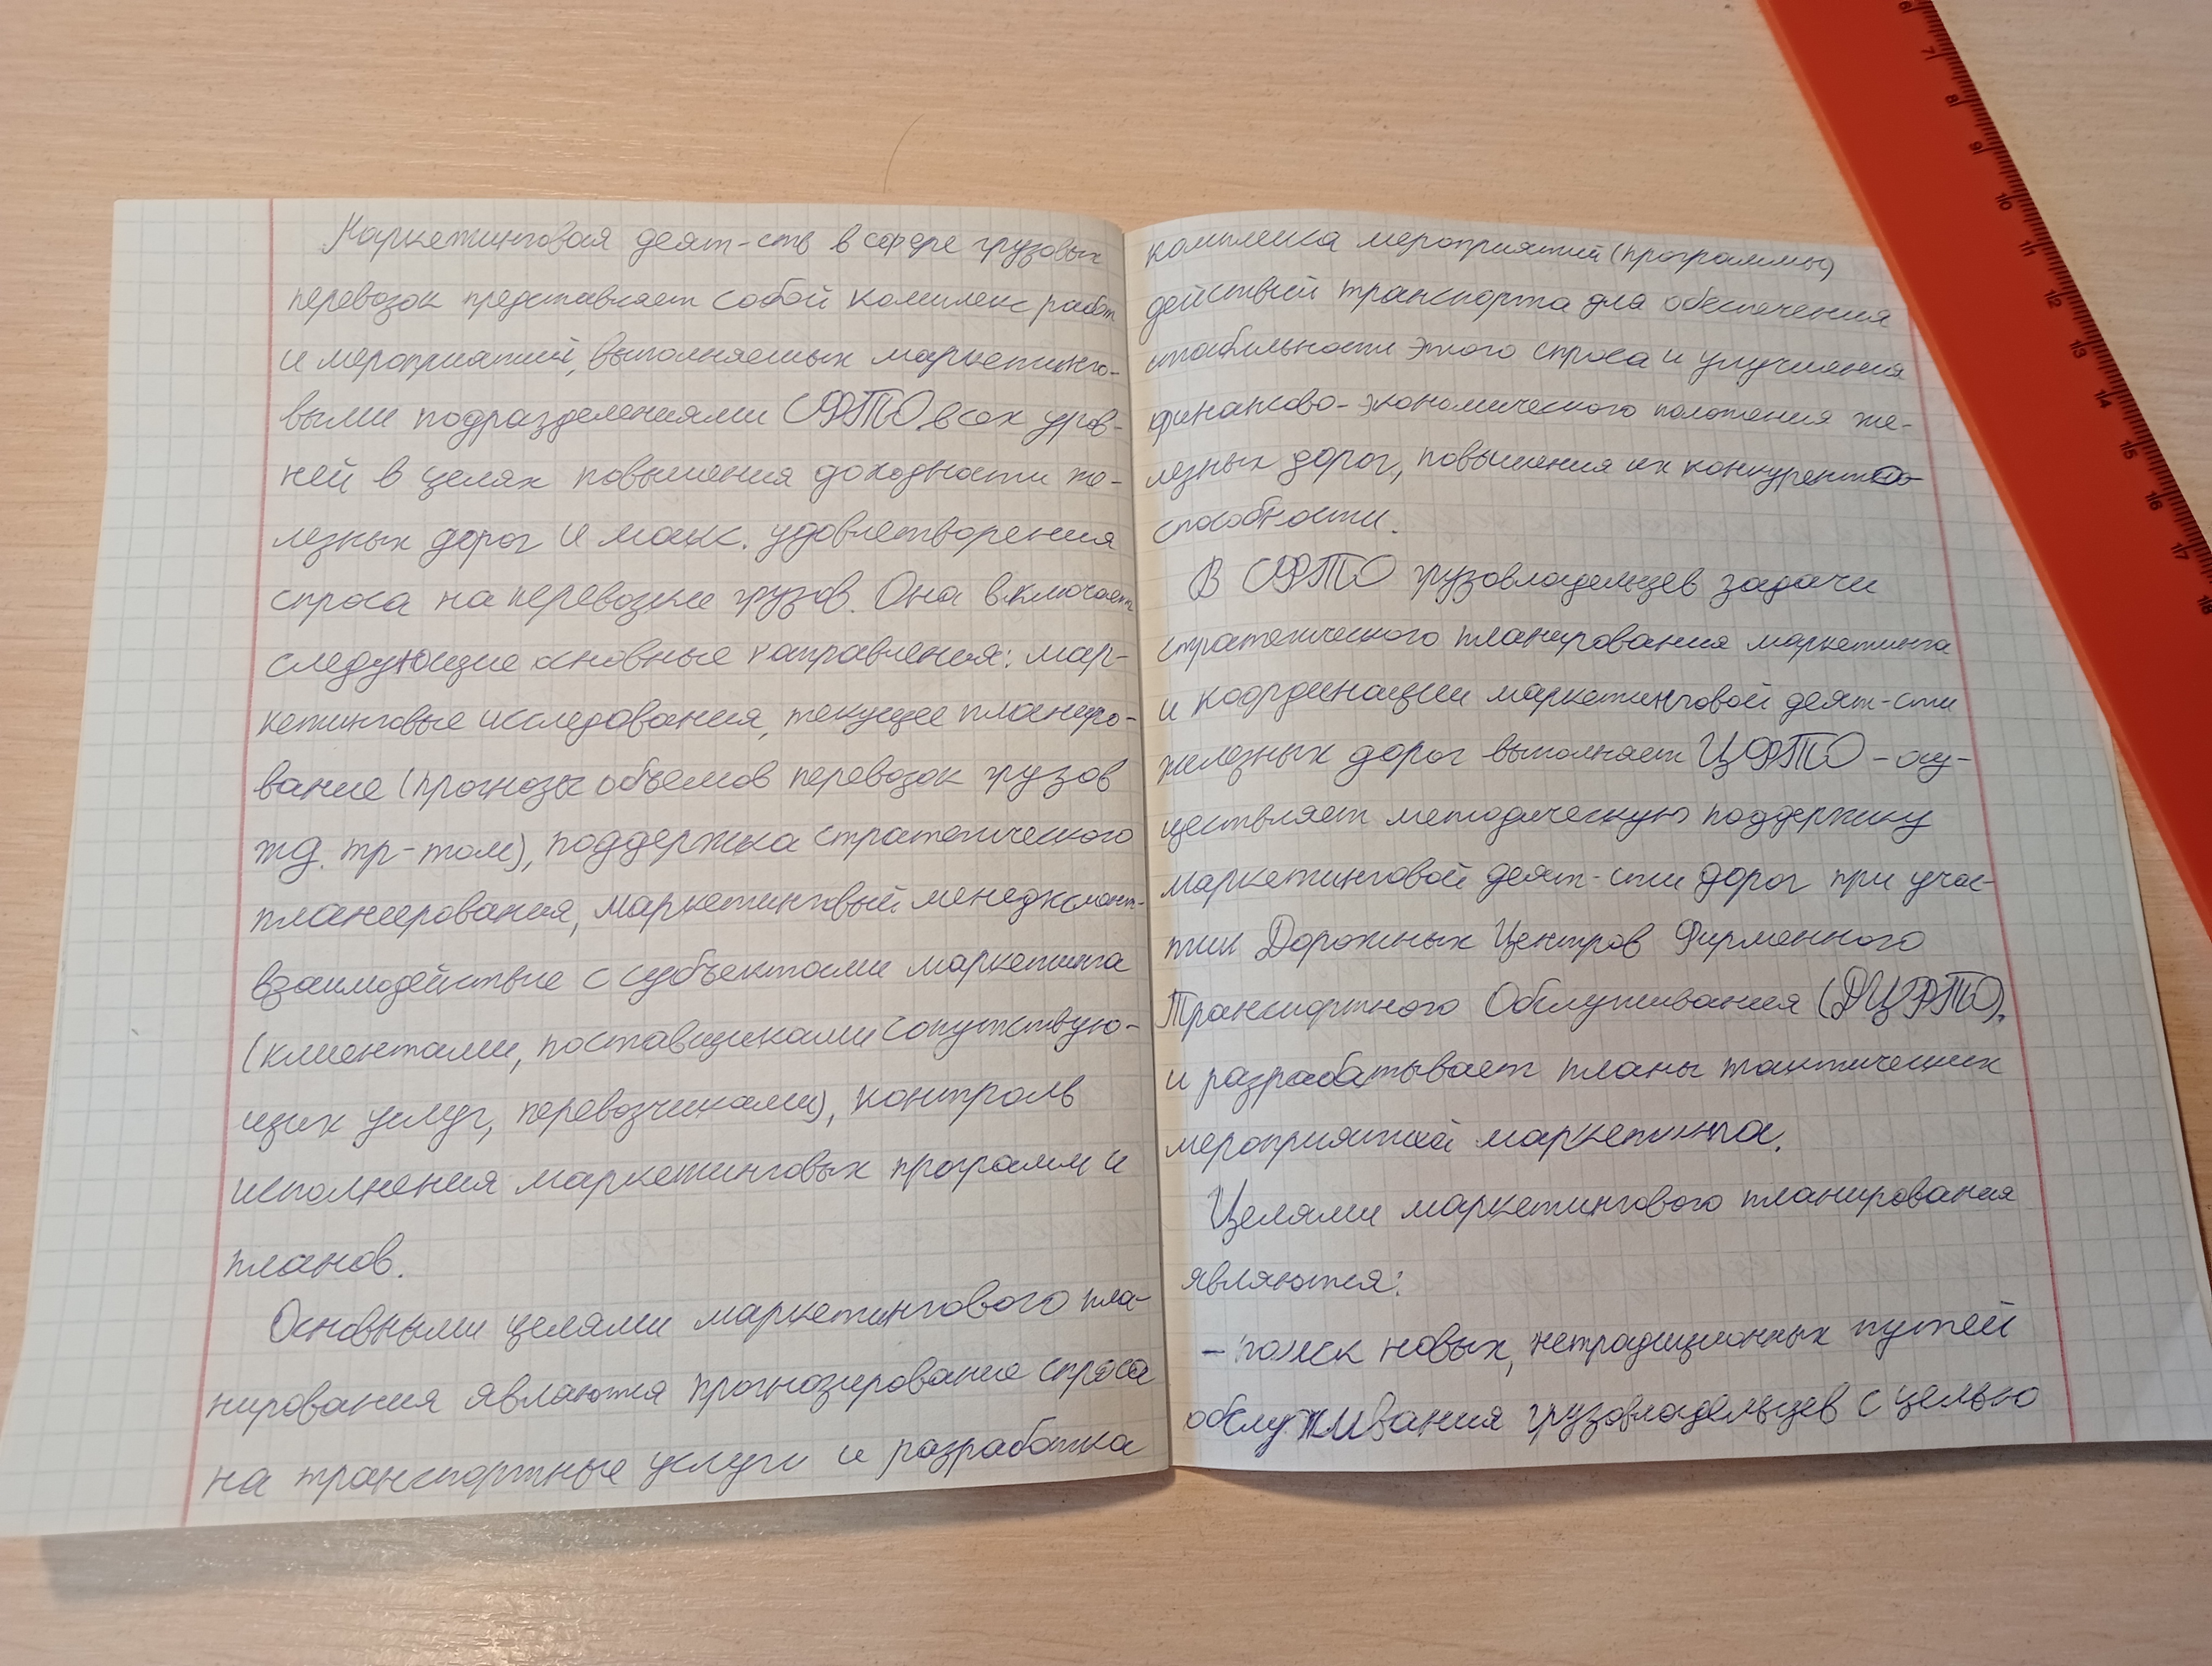 Маркетинговая деят-сть в сфере грузовых
перевозок представляет собой комплекс работ
и мероприятий, выполняемых маркетинго-
выми подразделениями СФТО всех уров-
ней в целях повышения доходности же-
лезных дорог и макс. удовлетворения
спроса на перевозки грузов. Она включает
следующие основные направления: мар-
кетинговые исследования, текущее планиро-
вание (прогнозы объемов перевозок грузов
жд. тр-том), поддержка стратегического
планирования, маркетинговый менеджмент-
взаимодействие с субъектами маркетинга
(клиентами, поставщиками сопутствую-
щих услуг, перевозчиками), контроль
исполнения маркетинговых программ и
планов.
Основными целями маркетингового пла-
нирования являются прогнозирование спроса
на транспортные услуги и разработка
комплекса мероприятий (программы)
действий транспорта для обеспечения
стабильности этого спроса и улучшения
финансово-экономического положения же-
лезных дорог, повышения их конкуренто-
способности.
В СФТО грузовладельцев задачи
стратегического планирования маркетинга
и координации маркетинговой деят-сти
железных дорог выполняет ЦФТО - осу-
ществляет методическую поддержку
маркетинговой деят-сти дорог при учас-
тии Дорожных Центров Фирменного
Транспортного Обслуживания (ДЦФТО).
и разрабатывает планы тактических
мероприятий маркетинга.
Целями маркетингового планирования
являются:
- поиск новых, нетрадиционных путей
обслуживания грузовладельцев с целью
7
8
9
10
11
12
13
14
15
16
17
18